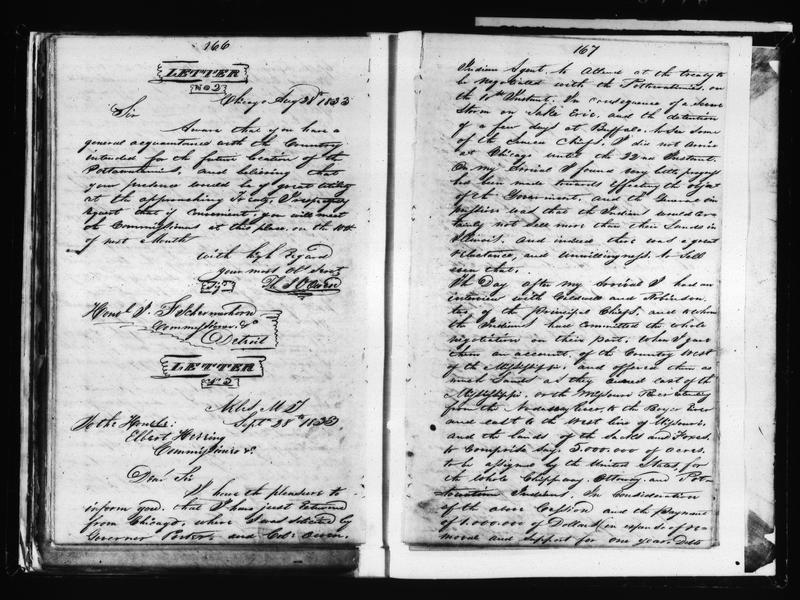 166
LETTER
No 2
Chicago Aug 28th 1833
Sir
Aware that you have a
general acquaintance with the Country
intended for the future location of the
Pottawatamies, and believing that
your presence would be of great utility
at the approaching Treaty, I respectfully
request that if convenient, you will meet
the Commissioners at this place, on the 10th
of next Month
With high Regard
your most Obt Servt
Sgd Th J V Owen
Honbl J. F Schermerhorn
Commissioner &c
Detroit
LETTER
No 2
Sept 28th 1833
To the Honble:
Elbert Herring
Commissioner &c
Dear Sir
I have the pleasure to
inform you, that I have just returned
from Chicago, where I was invited by
Governor Porter, and Col: Owen,
167
Indian Agent, to Attend at the treaty to
be negotiated with the Pottawatamies, on
the 10th Instant. In consequence of a severe
Storm on Lake Erie, and the detention
of a few days at Buffalo, to see some
of the Seneca Chiefs, I did not arrive
at Chicago until the 22nd Instant.
On my arrival I found very little progress
has been made towards effecting the object
of the Government, and the General im
pression was that the Indians would cer
tainly not sell more than their Lands in
Illinois. And indeed there was a great
reluctance, and unwillingness to sell
even that.
The Day after my arrival I had an
interview with Caldwell and Robinson,
two of the Principal Chiefs, and to whom
the Indians had committed the whole
negotiation on their part. When I gave
them an account, of the Country West
of the Mississippi, and offered them as
much Lands as they owned east of the
Mississippi, on the Missouri River
from the River to the Boyer River
and east to the West line of Missouri,
and the lands of the Sacks and Foxes,
to Comprise Say. 5.000.000 of acres,
to be assigned by the United States, for
the whole Chippeway Ottoway and Pot=
Indians. In Consideration
of the above Cession and the payment
of 1.000.000 of Dollars (in expends of re=
moval and support for one year, Debts